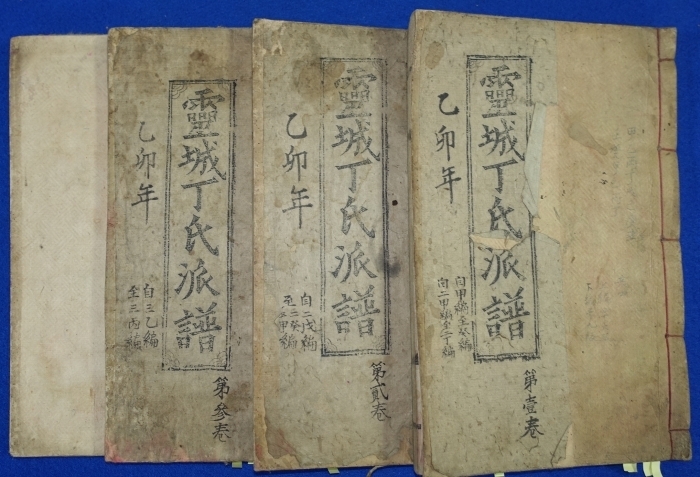 靈城丁氏派譜
乙卯年
自甲編至癸編
向二甲編至二丁編
第壹卷
靈城丁氏派譜
乙卯年
自二戊編
至二癸編
第貳卷
靈城丁氏派譜
乙卯年
自三乙編
至三丙編
第參卷